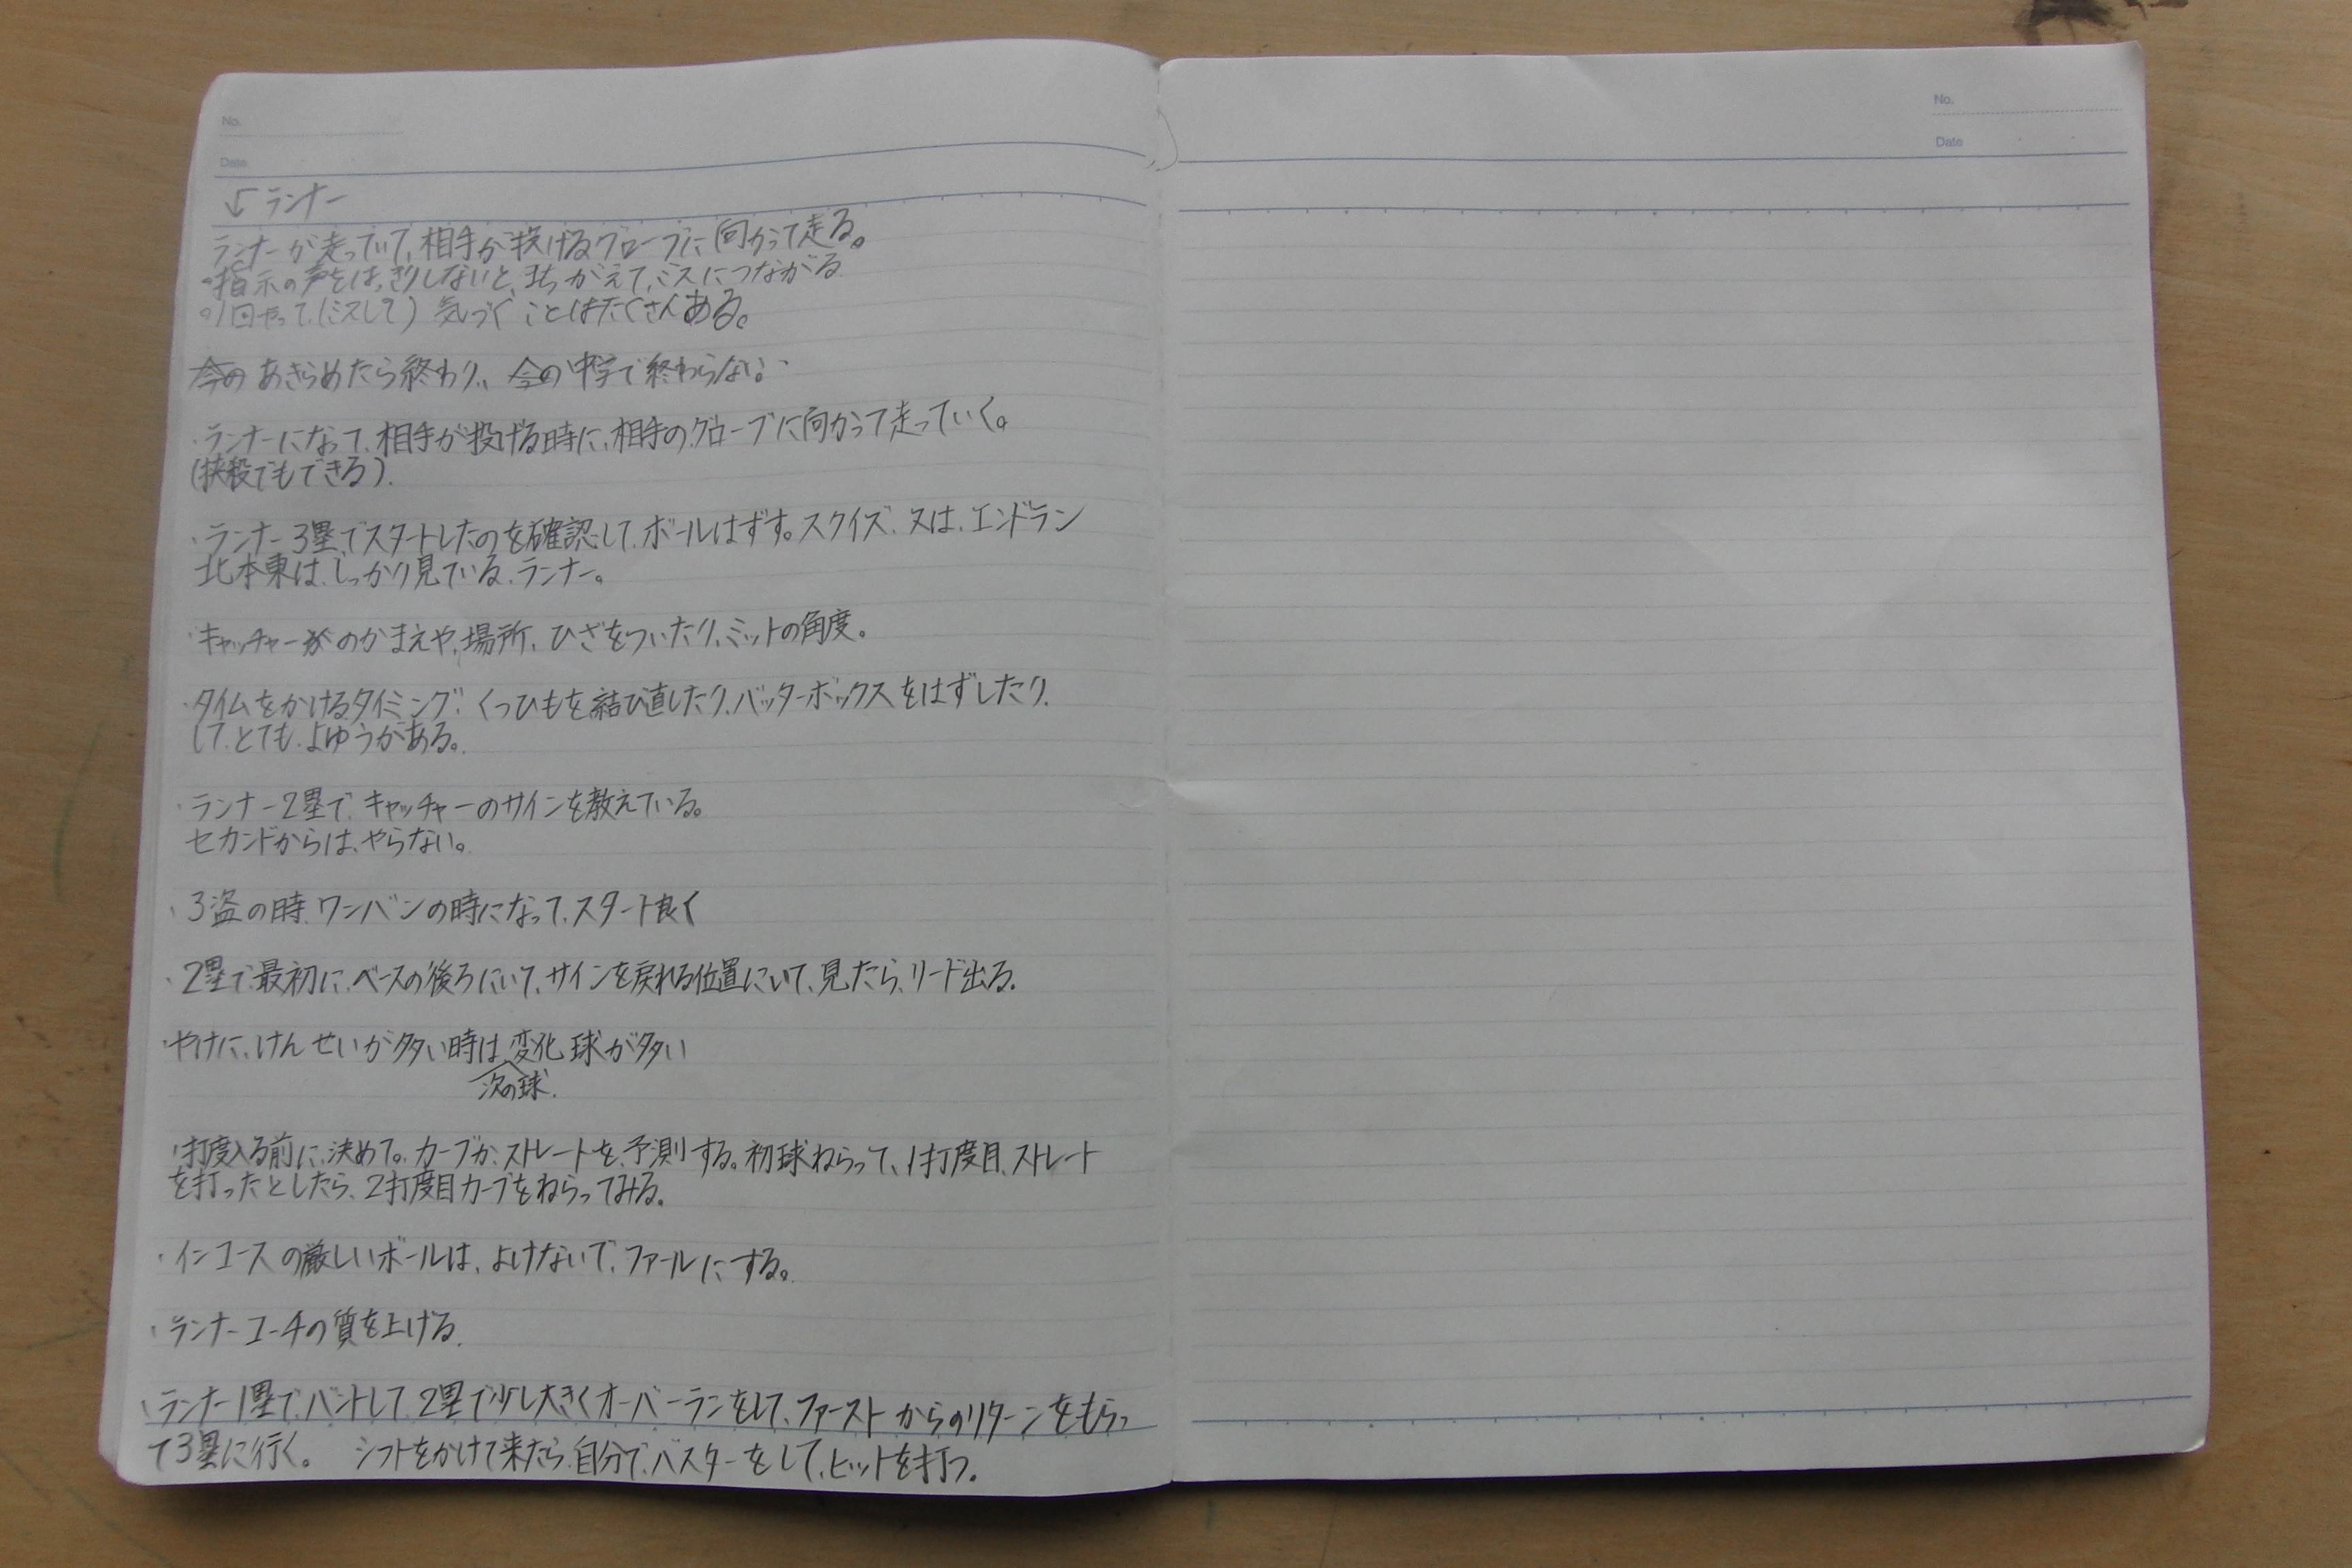 No.
Date
↙ランナー
ランナーが走っていて、相手が投げるグローブに向かって走る。
・指示の声をはっきりしないと、まちがえて、ミスにつながる
○1回やって、(ミスして) 気づくことはたくさんある。
今の あきらめたら終わり、今の中学で終わらない。
・ランナーになって、相手が投げる時に、相手のグローブに向かって走っていく。
(挟殺でもできる).
・ランナー3塁でスタートしたのを確認して、ボールはずす。スクイズ、又は、エンドラン
北本東は、しっかり見ている、ランナー。
・キャッチャーが のかまえや、場所、ひざをついたり、ミットの角度。
・タイムをかけるタイミング: くつひもを結び直したり、バッターボックスをはずしたり、
して、とても、よゆうがある。
・ランナー2塁で、キャッチャーのサインを教えている。
セカンドからは、やらない。
・3盗の時、ワンバンの時になって、スタート良く
・2塁で、最初に、ベースの後ろにいて、サインを戻れる位置にいて、見たら、リード出る。
・やけに、けんせいが多い時は、変化球が多い
次の球.
・打度入る前に、決めて。カーブか、ストレートを、予測する。初球ねらって、1打度目、ストレート
を打ったとしたら、2打度目カーブをねらってみる。
・インコースの厳しいボールは、よけないで、ファールにする。
・ランナーコーチの質を上げる.
・ランナー1塁で、バントして、2塁で少し大きくオーバーランをして、ファーストからのリターンをもらっ
て3塁に行く。 シフトをかけて来たら、自分で、バスターをして、ヒットを打つ。
No.
Date